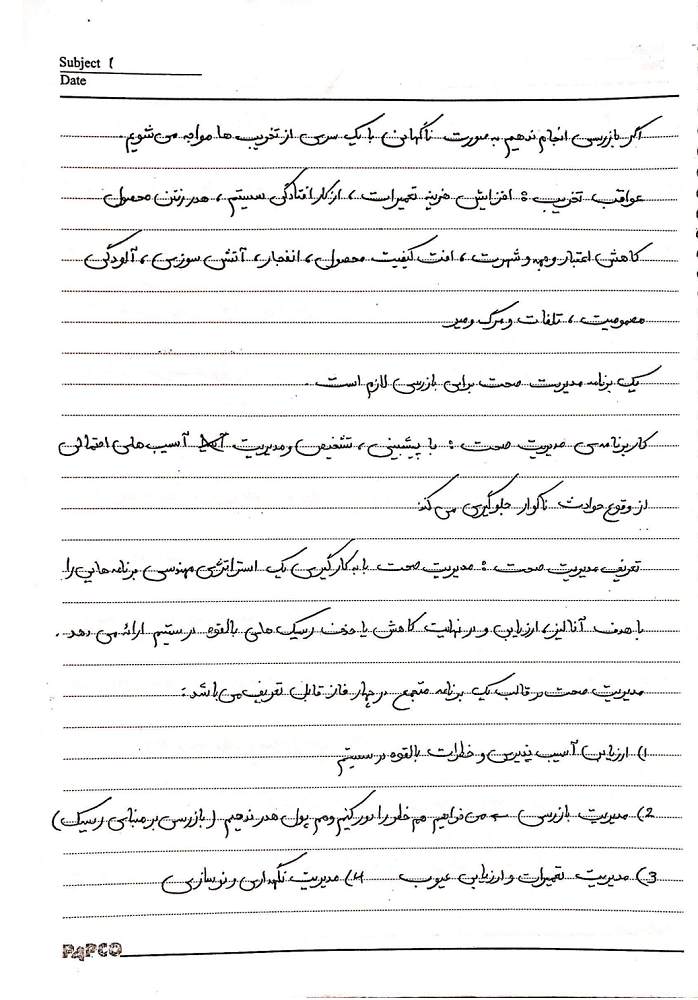 Subject 1
Date
اگر بازرسی انجام ندهیم به صورت ناگهانی با یک سری از تخریب ها مواجه می شویم.
عواقب تخریب : افزایش هزینه تعمیرات ، از کار افتادگی سیستم ، هدر رفتن محصول
کاهش اعتبار وجهه و شهرت ، افت کیفیت محصول ، انفجار ، آتش سوزی ، آلودگی
مصمومیت ، تلفات و مرگ و میر
یک برنامه مدیریت صحت برای بازرسی لازم است .
کار برنامه ی مدیریت صحت : با پیشبینی ، تشخیص و مدیریت آسیب های احتمالی
از وقوع حوادث ناگوار جلوگیری می کند.
تعریف مدیریت صحت : مدیریت صحت با به کارگیری یک استراتژی مهندسی برنامه هایی را
با هدف آنالیز ، ارزیابی و در نهایت کاهش یا حذف ریسک های بالقوه در سیستم ارائه می دهد .
مدیریت صحت در قالب یک برنامه متجمع در چهار فاز قابل تعریف می باشد :
1) ارزیابی آسیب پذیری و خطرات بالقوه در سیستم
2) مدیریت بازرسی ← می خواهیم هم خطر را دور کنیم و هم پول هدر ندهیم (بازرسی بر مبنای ریسک)
3) مدیریت تعمیرات و ارزیابی عیوب 4) مدیریت نگهداری و نوسازی
PAPCO